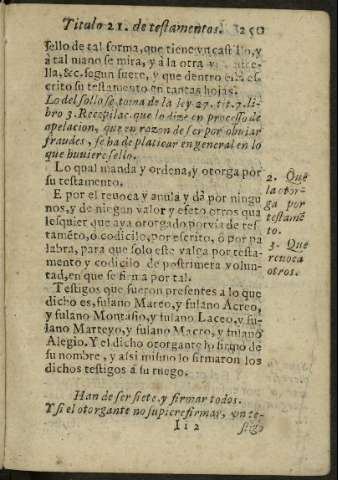 Titulo 21. de testamentos. 250
sello de tal forma, que tiene vn castillo, y
a tal mano se mira, y â la otra
lla, &c. segun fuere, y que dentro esta es
crito su testamento en tantas hojas.
Lo del sello se toma de la ley 27. tit. 7. li-
bro 3. Recopilac. que lo dize en processo de
apelacion, que en razon de ser por obuiar
fraudes, se ha de platicar en general en lo
que huuiere sello.
Lo qual manda y ordena, y otorga por
su testamento.
E por el reuoca y anula y dâ por ningu
nos, y de ningun valor y efeto otros qua
lesquier que aya otorgado por via de tes
tamẽto, ò codicilo, por escrito, ò por pa
labra, para que solo este valga por testa-
mento y codicilo de postrimera volun-
tad, en que se firma por tal.
Testigos que fueron presentes a lo que
dicho es, fulano Mateo, y fulano Acreo,
y fulano Montasio, y fulano Laceo, y fu-
lano Marteyo, y fulano Macro, y fulano
Alegio. Y el dicho otorgante lo firmo de
su nombre, y assi mismo lo firmaron los
dichos testigos â su ruego.
2. Que
la otor-
ga por
testamẽ
to.
3. Que
reuoca
otros.
Han de ser siete, y firmar todos.
Y si el otorgante no supiere firmar, vn te-
Ii 2 stigo